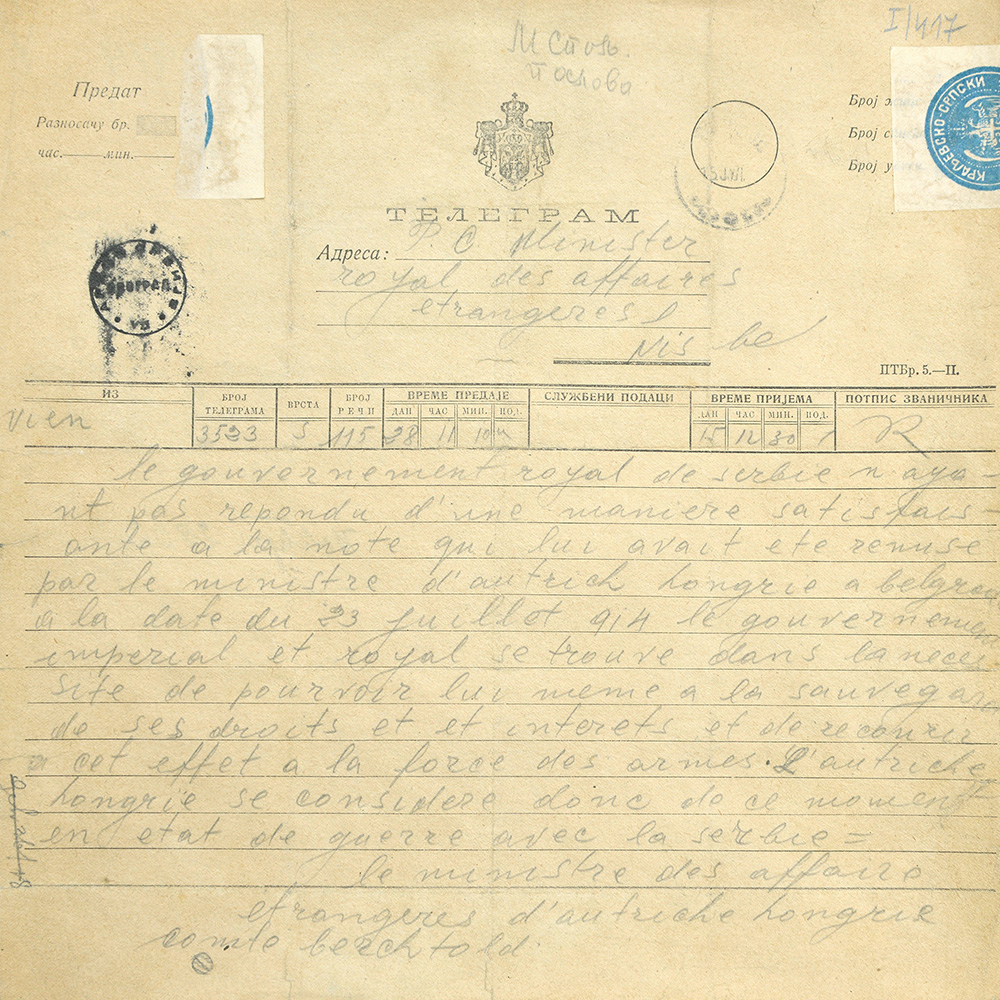 I/417
М Спољ.
послова
Предат
Разносачу бр.
час. мин.
Број
Број
Број
КРАЉЕВСКО-СРПСКИ
ТЕЛЕГРАМ
Адреса: P. C Minister
royal des affaires
etrangeres
Nis be
ПТБр. 5.—II.
ИЗ
БРОЈ ТЕЛЕГРАМА
ВРСТА
БРОЈ РЕЧИ
ВРЕМЕ ПРЕДАЈЕ
ДАН ЧАС МИН. ПОД.
СЛУЖБЕНИ ПОДАЦИ
ВРЕМЕ ПРИЈЕМА
ДАН ЧАС МИН. ПОД.
ПОТПИС ЗВАНИЧНИКА
Vien 3523 S 115 28 11 10 15 12 30 R
le gouvernement royal de serbie n aya-
nt pas repondu d'une maniere satisfais-
ante a la note qui lui avait ete remise
par le ministre d'autrich hongrie a belgrad
a la date du 23 juillet 914 le gouvernement
imperial et royal se trouve dans la neces
site de pourvoir lui meme a la sauvegar
de ses droits et et interets et de recourir
a cet effet a la force des armes. L'autriche
hongrie se considere donc de ce moment
en etat de guerre avec la serbie =
le ministre des affaire
etrangeres d'autriche hongrie
comte berchtold